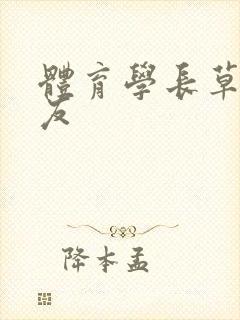 體育學長草
友
降本孟